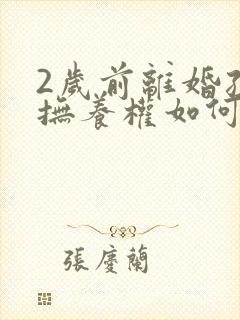 2歲前離婚孩
撫養權如何
張慶蘭